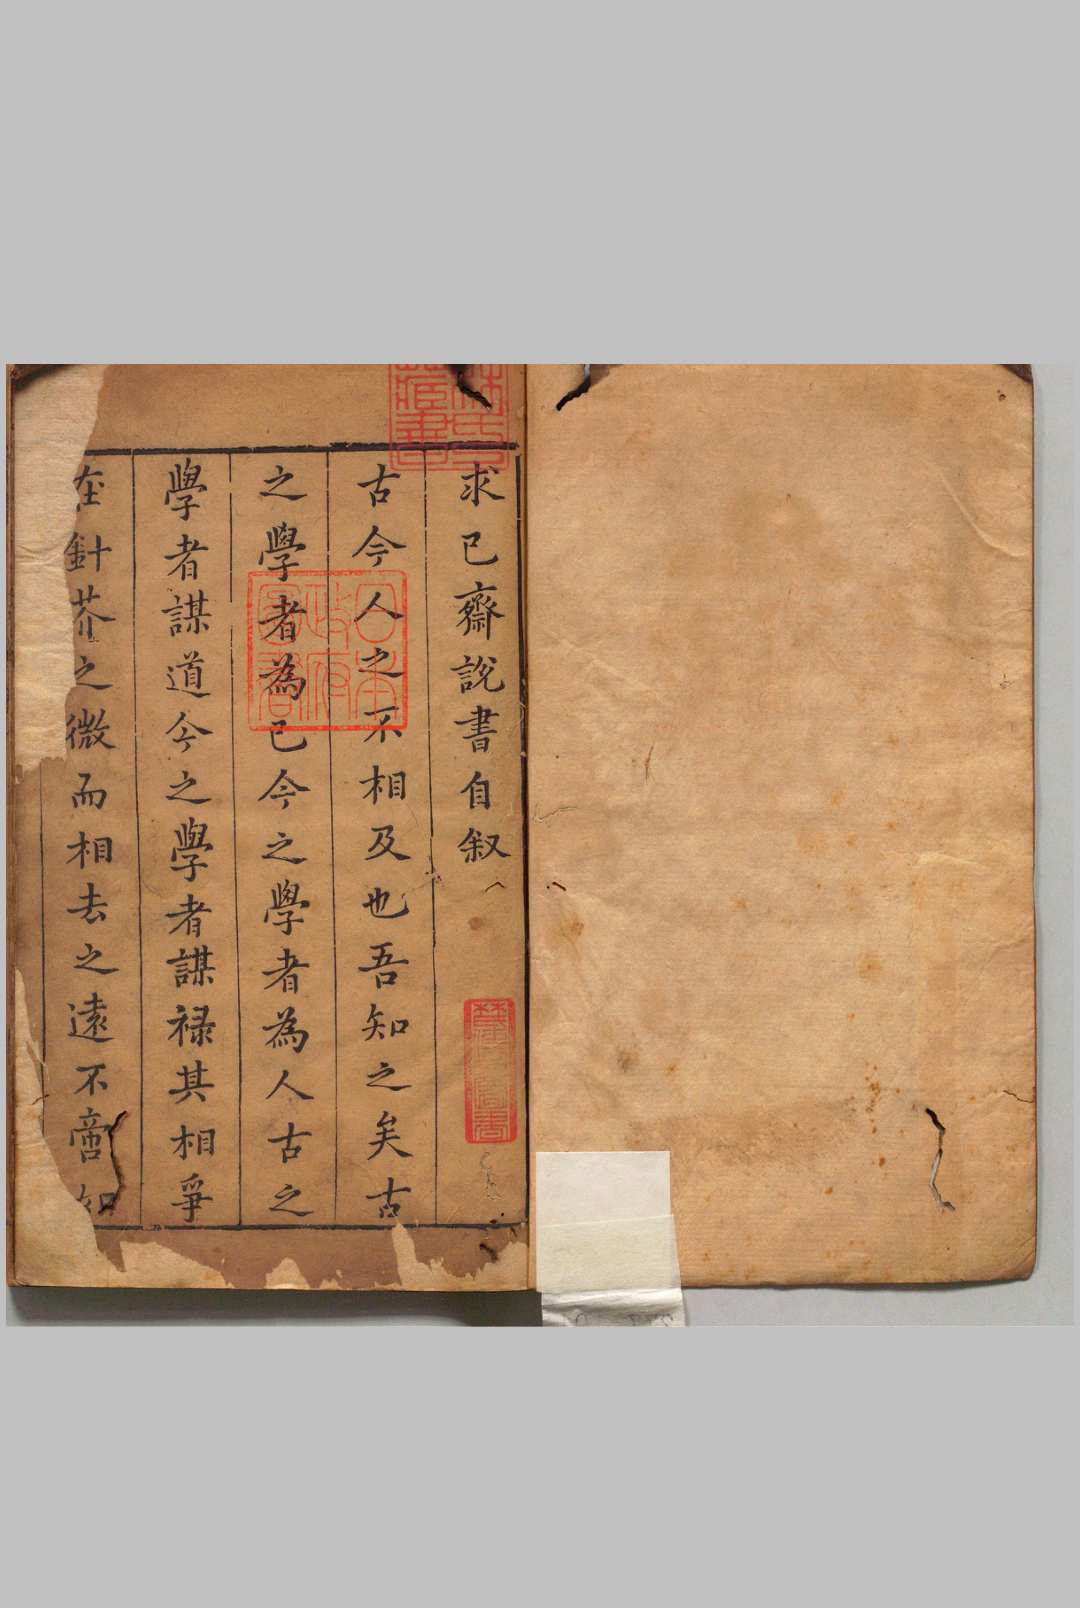 求已齋說書自叙
古今人之不相及也吾知之矣古
之學者為已今之學者為人古之
學者謀道今之學者謀祿其相爭
在針芥之微而相去之遠不啻如
林氏藏書
日本政府圖書